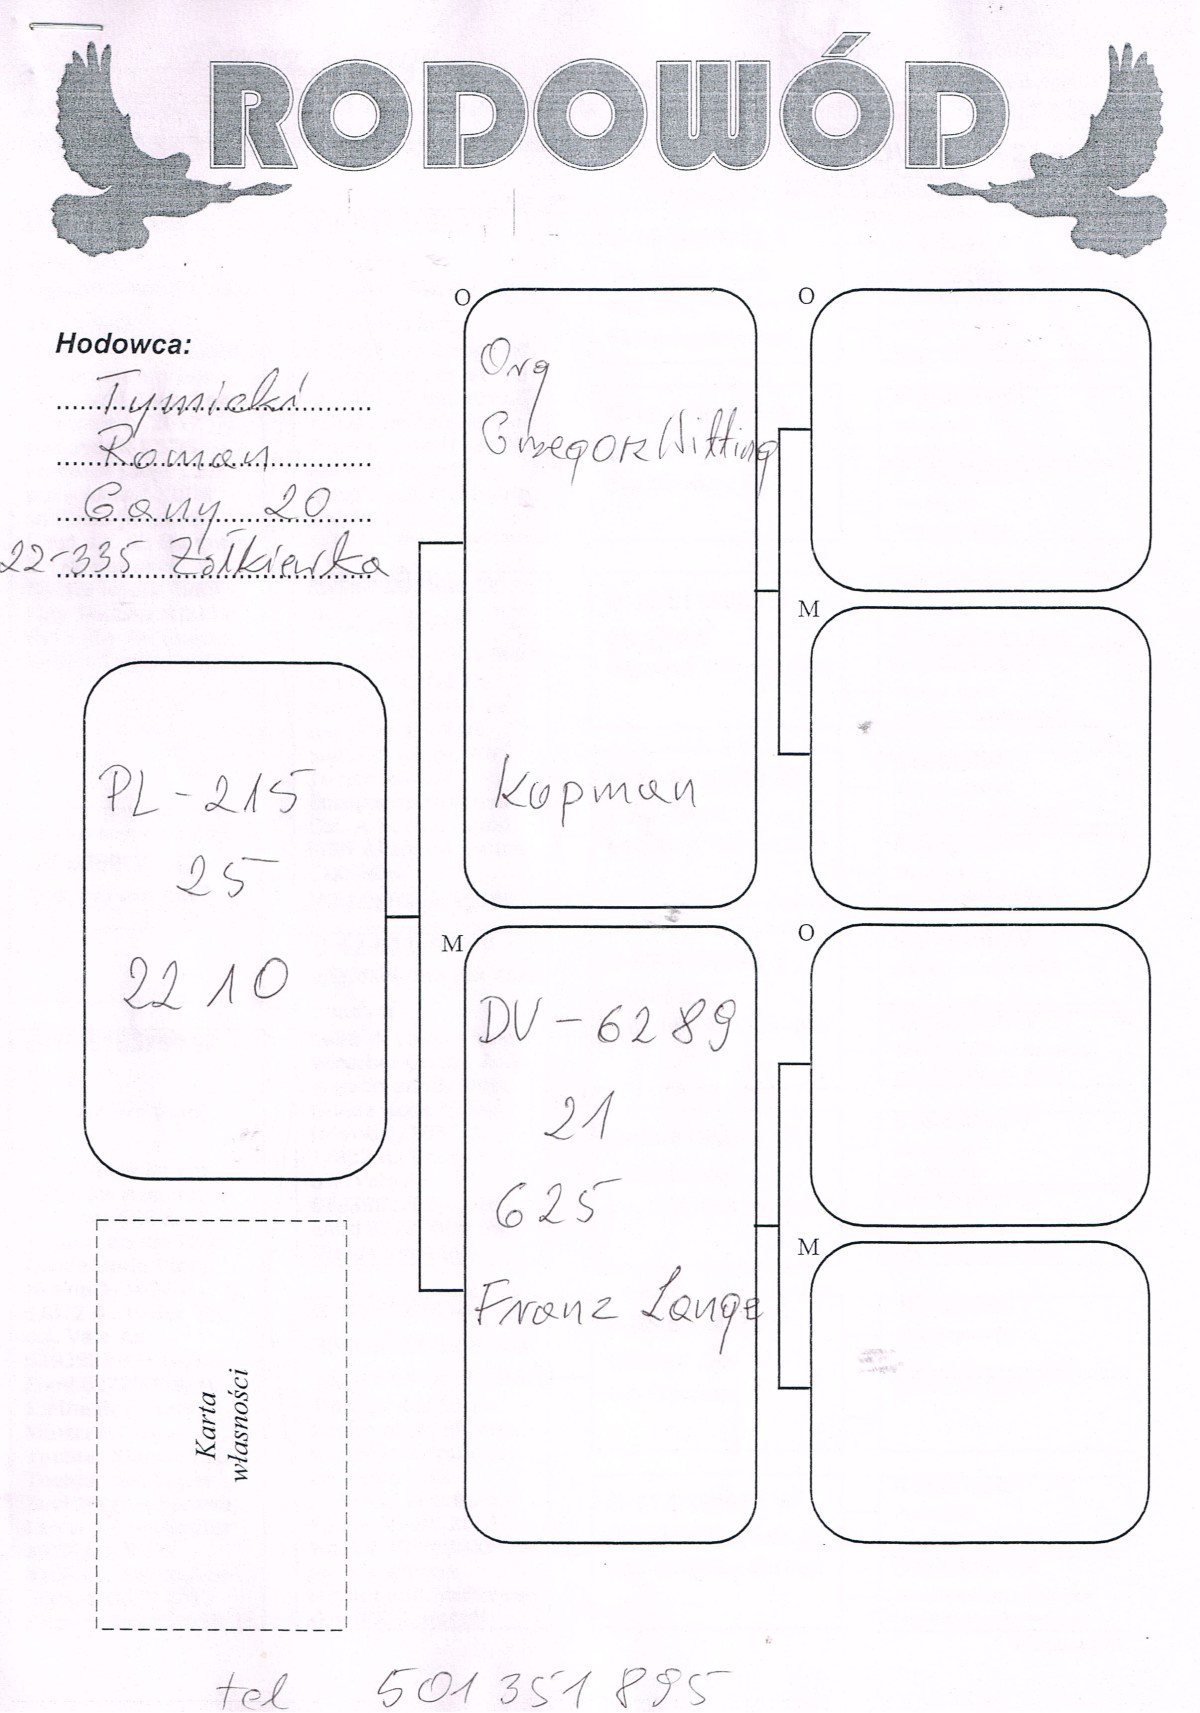 RODOWÓD
Hodowca:
Tymicki
Roman
Gany 20
22-335 Żółkiewka
PL-215
25
2210
O
Org
Grzegorz Witting
Kopman
M
DV-6289
21
625
Franz Lange
O
M
O
M
Karta
własności
tel 501 351 895